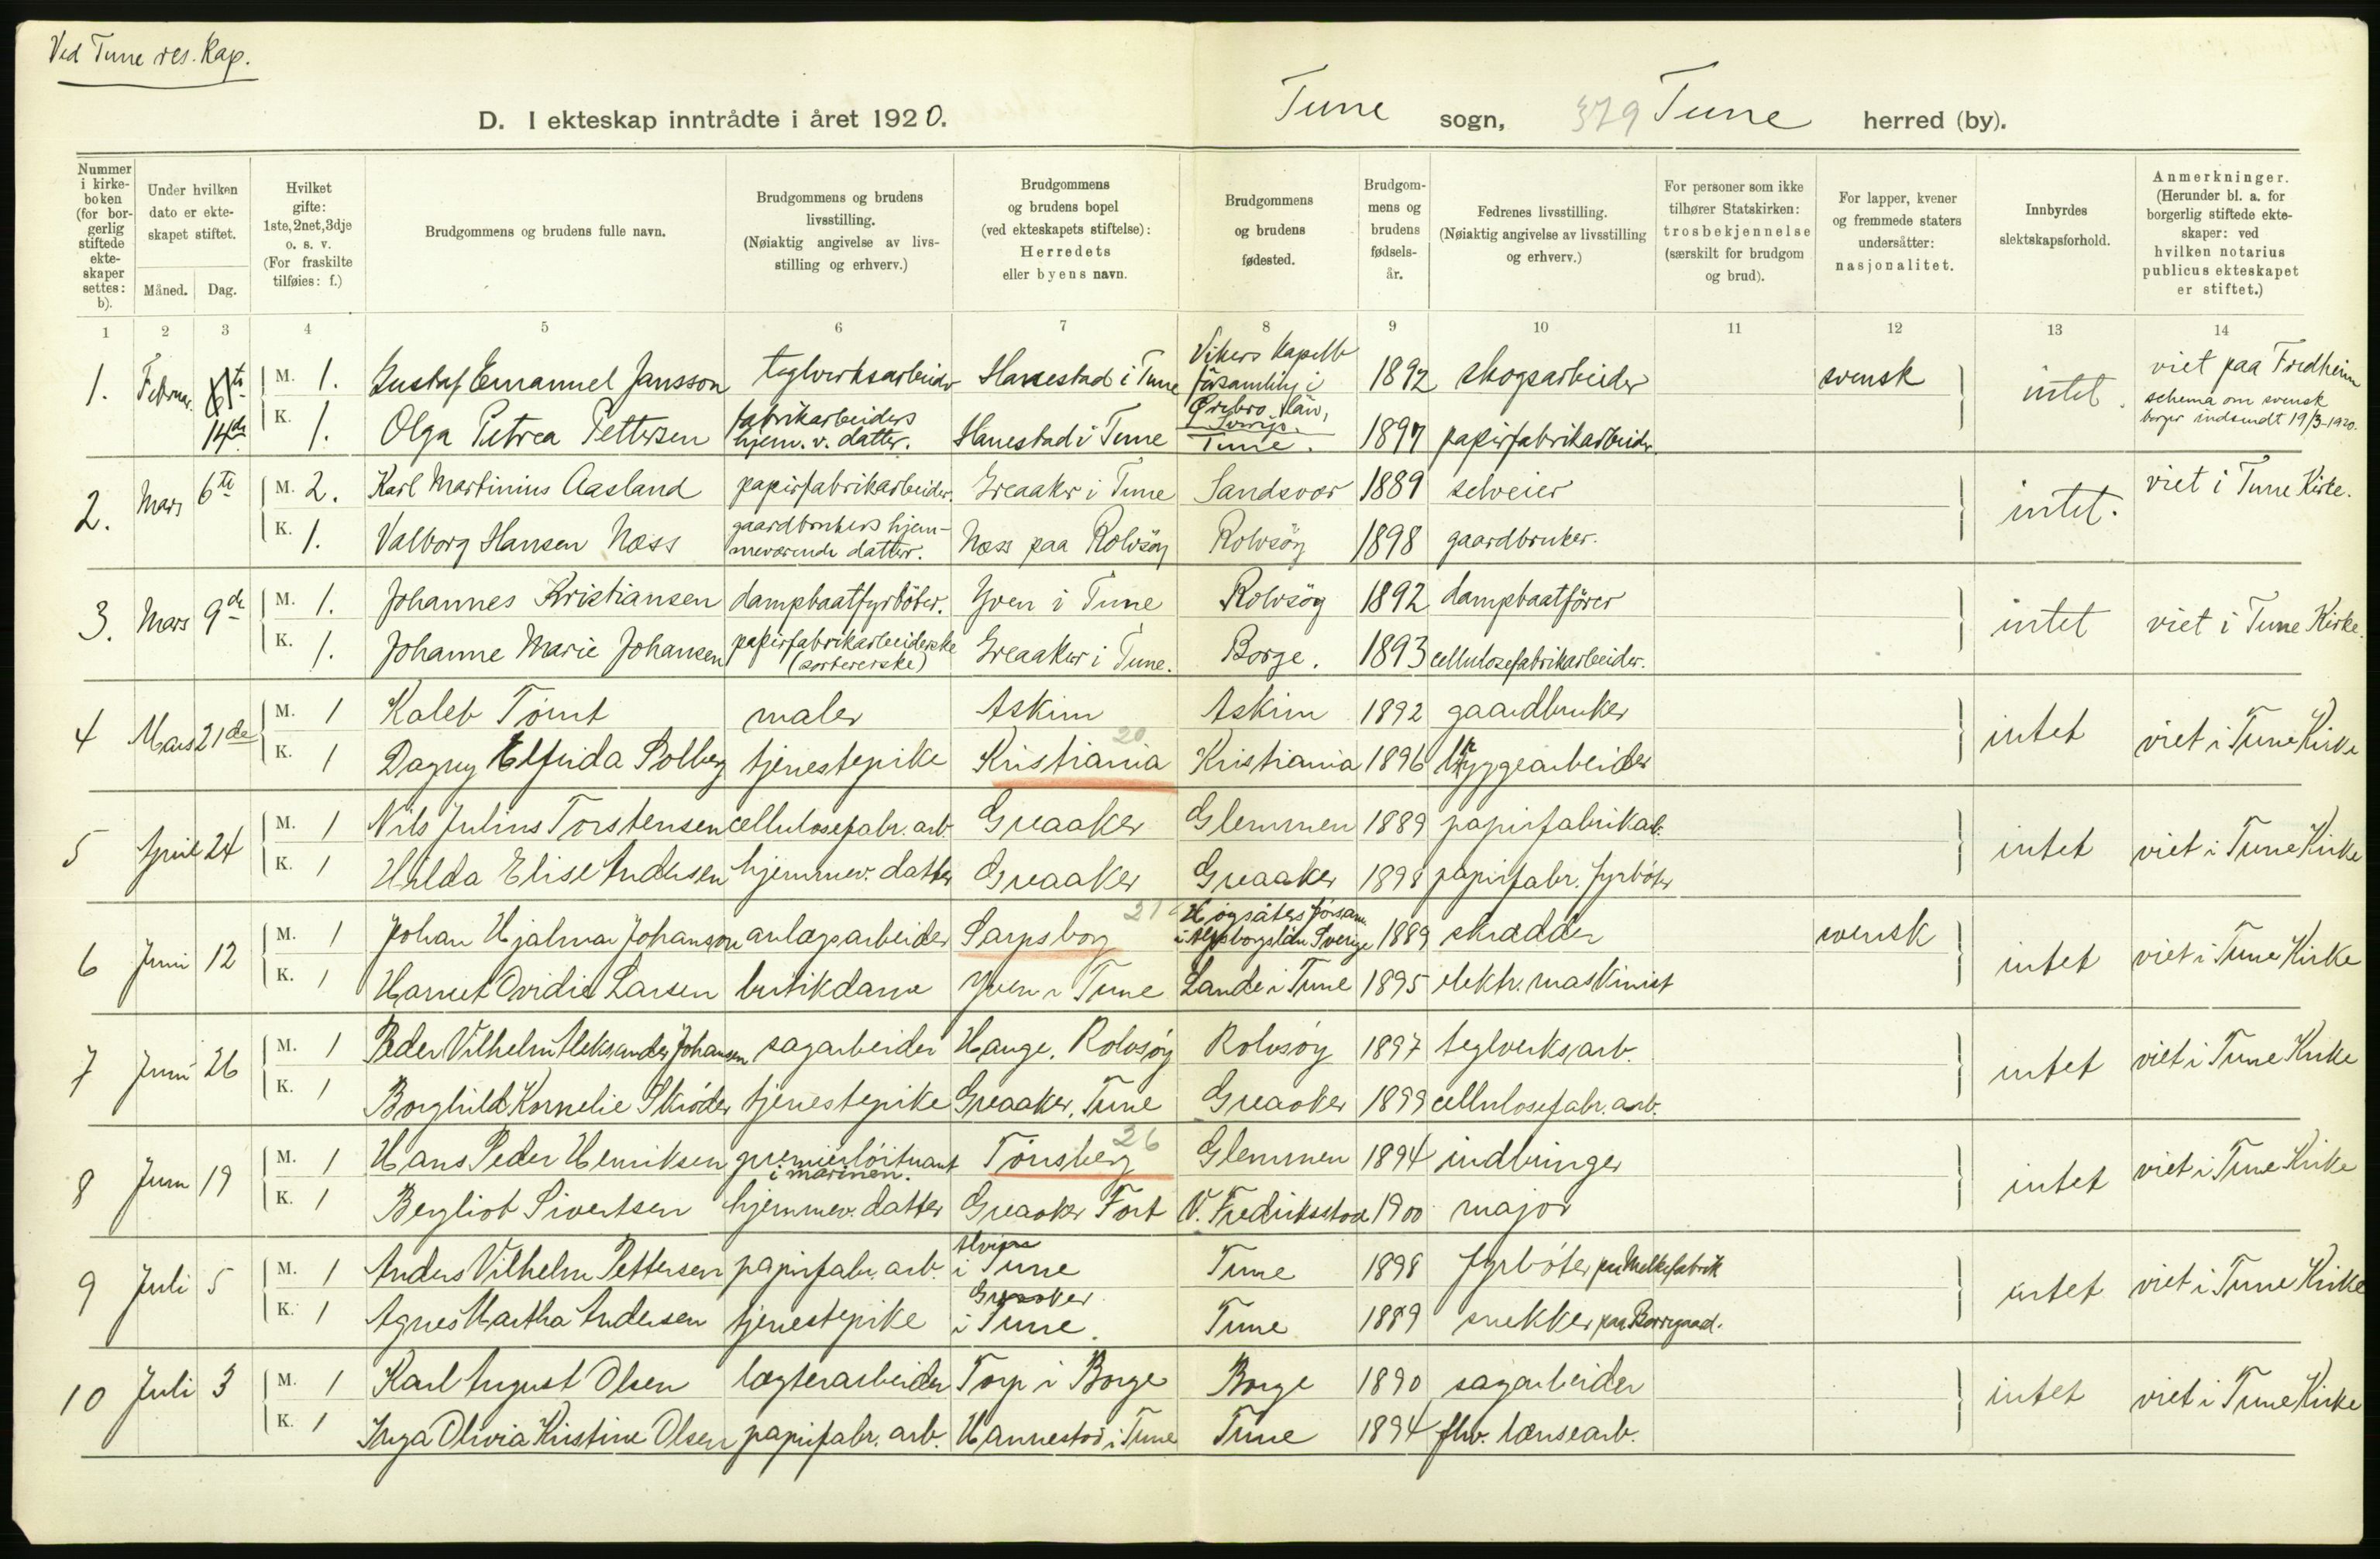 Ved Tune res. Kap.
D. I ekteskap inntrådte i året 1920.
Tune sogn, 379 Tune herred (by).
Nummer i kirkeboken (for borgerlig stiftede ekteskaper settes: b).
Under hvilken dato er ekteskapet stiftet.
Måned. Dag.
Hvilket gifte: 1ste, 2net, 3dje o. s. v. (For fraskilte tilføies: f.)
Brudgommens og brudens fulle navn.
Brudgommens og brudens livsstilling. (Nøiaktig angivelse av livsstilling og erhverv.)
Brudgommens og brudens bopel (ved ekteskapets stiftelse): Herredets eller byens navn.
Brudgommens og brudens fødested.
Brudgommens og brudens fødselsår.
Fedrenes livsstilling. (Nøiaktig angivelse av livsstilling og erhverv.)
For personer som ikke tilhører Statskirken: trosbekjennelse (særskilt for brudgom og brud).
For lapper, kvener og fremmede staters undersåtter: nasjonalitet.
Innbyrdes slektskapsforhold.
Anmerkninger. (Herunder bl. a. for borgerlig stiftede ekteskaper: ved hvilken notarius publicus ekteskapet er stiftet.)
1 2 3 4 5 6 7 8 9 10 11 12 13 14
1. Februar 14de M. 1. Gustaf Emanuel Jansson teglverksarbeider Hanestad i Tune Vikers Kapellförsamling i Örebro län, Sverige. 1892 skogsarbeider svensk intet. viet paa Fredheim schema om svensk borger indsendt 19/3-1920.
K. 1. Olga Petrea Pettersen fabrikarbeiders hjem. v. datter. Hanestad i Tune Tune. 1897 papirfabrikarbeider.
2. Mars 6te M. 2. Karl Martinius Aasland papirfabrikarbeider. Greaaker i Tune Sandsvær 1889 selveier intet. viet i Tune Kirke.
K. 1. Valborg Hansen Næss gaardbrukers hjemmeværende datter. Næss paa Rolvsöy Rolvsöy 1898 gaardbruker.
3. Mars 9de M. 1. Johannes Kristiansen dampbaatfyrböter. Yven i Tune Rolvsöy 1892 dampbaatförer intet viet i Tune Kirke.
K. 1. Johanne Marie Johansen papirfabrikarbeiderske (sortererske) Greaaker i Tune. Borge. 1893 cellulosefabrikarbeider.
4 Mars 21de M. 1 Kaleb Tömt maler Askim Askim 1892 gaardbruker intet viet i Tune Kirke
K. 1 Dagny Elfrida Solberg tjenestepike Kristiania 20 Kristiania 1896 bryggearbeider
5 April 24 M. 1 Nils Julius Torstensen cellulosefabr. arb. Greaaker Glemmen 1889 papirfabrikarb. intet viet i Tune Kirke
K. 1 Hilda Elise Andersen hjemmev. datter Greaaker Greaaker 1898 papirfabr. fyrböter
6 Juni 12 M. 1 Johan Hjalmar Johanson anlægsarbeider Sarpsborg Högsäters församl. i Älfsborgslän Sverige 1889 skrædder svensk intet viet i Tune Kirke
K. 1 Harriet Ovidia Larsen butikdame Yven i Tune Lande i Tune 1895 elektr. maskinist
7 Juni 26 M. 1 Peder Vilhelm Aleksander Johansen sagarbeider Hauge. Rolvsöy Rolvsöy 1897 teglverksarb. intet viet i Tune Kirke
K. 1 Borghild Kornelie Skröder tjenestepike Greaaker. Tune Greaaker 1899 cellulosefabr. arb.
8 Juni 19 M. 1 Hans Peder Henriksen premierlöitnant i marinen. Tönsberg 26 Glemmen 1894 indbringer intet viet i Tune Kirke
K. 1 Bergliot Sivertsen hjemmev. datter Greaaker Fort V. Fredriksstad 1900 major
9 Juli 5 M. 1 Anders Vilhelm Pettersen papirfabr. arb. Alvim i Tune Tune 1898 fyrböter paa Melkefabrik intet viet i Tune Kirke
K. 1 Agnes Martha Andersen tjenestepike Greaaker i Tune. Tune 1889 snekker paa Borregaard.
10 Juli 3 M. 1 Karl August Olsen lægterarbeider Torp i Borge Borge 1890 sagarbeider intet viet i Tune Kirke
K. 1 Inga Olivia Kristine Olsen papirfabr. arb. Hannestad i Tune Tune 1894 fhv. lænsearb.